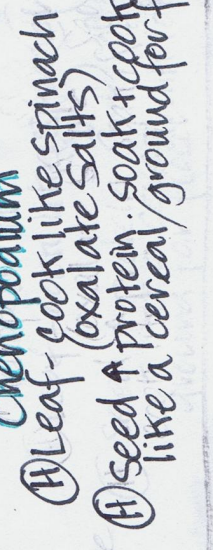 Chenopodium
(H) Leaf - cook like spinach
(oxalate salts)
(H) Seed ↑ protein. Soak + cook
like a cereal / ground for